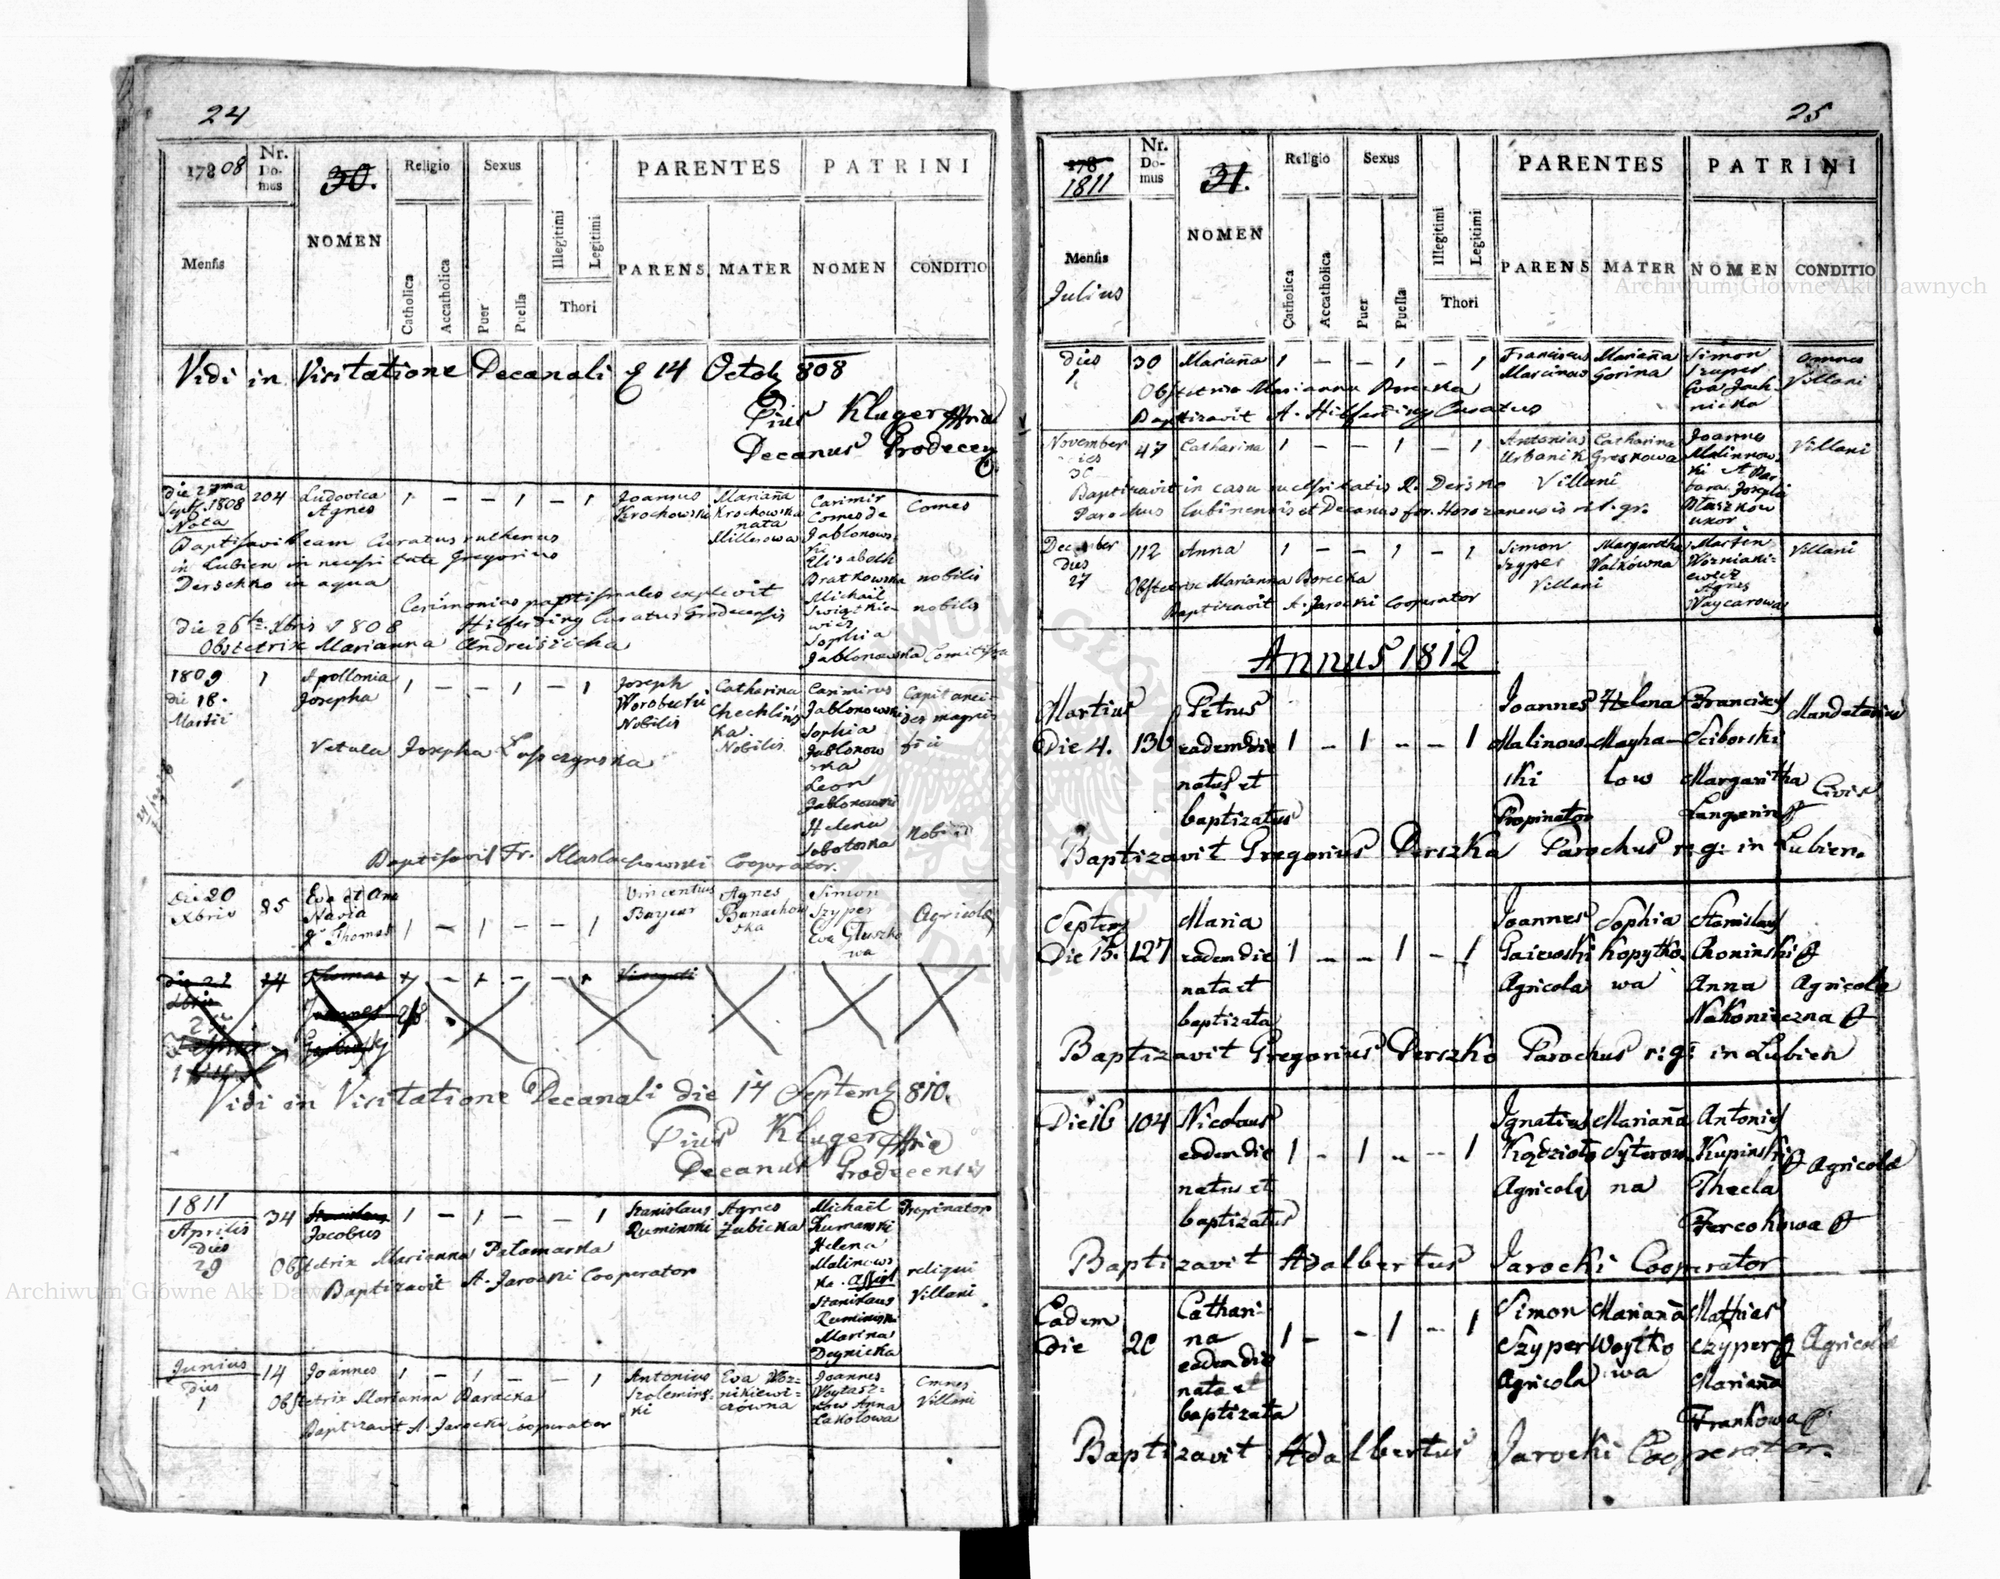 24
178 08
Nr. Do- mus
30.
NOMEN
Religio
Sexus
PARENTES
PATRINI
Mensis
Catholica
Accatholica
Puer
Puella
Illegitimi
Legitimi
Thori
PARENS
MATER
NOMEN
CONDITIO
Vidi in Visitatione Decanali d 14 Octob 808
Pius Kluger
Decanus Grodecen
Septb. 1808 204 Ludovica 1 – – 1 – 1 Joannes Mariana Casimir Comes
Nata Agnes Krochowski Krochowska Comes de
nata Jablonows
Millerowa ki
Baptisavit eam Curatus ruthenus Elisabeth
in Lubien in necessitate Gregorius Bratkowska nobilis
Derschko in aqua Michail
Cerimonias baptismales explevit nobilis
die 26 Xbris 1808 Hilferding Curatus Grodecensis Sophia
Obstetrix Marianna Jablonowska Comitissa
1809 1 Apollonia 1 – – 1 – 1 Joseph Catharina Casimirus
die 18. Josepha Worobecki Chechlińs Jablonowski
Martii Nobilis ka. Sophia
Nobilis Jablonow
Vetula Josepha ska
Leon
Jablonowski
Helena
Sobotoska
Baptisavit Fr. Cooperator.
Die 20 25 Eva et Ana Vincentius Agnes Simon Agricola
Xbris Baycar Banachow Szyper
Thomas 1 – 1 – – 1 ska Eva Gluszko
wa
Thomas
Vidi in Visitatione Decanali die 17 Septemb 810.
Pius Kluger
Decanus Grodecensis
1811 34 Stanislaus 1 – 1 – – 1 Stanislaus Agnes Michael Propinator
Aprilis Jacobus Ruminski Zubicka Kumanski
Dies Helena
29 Obstetrix Marianna Palamarka Malinows
Baptizavit A. Jarocki Cooperator ka. Assist reliqui
Stanislaus Villani
Ruminski
Marina
Deynicka
Junius 14 Joannes 1 – 1 – – 1 Antonius Eva Woz- Joannes Omnes
Dies Szlemins- nikiewi- Woytasz- Villani
1 Obstetrix Marianna Baracka ki czówna kow Anna
Baptizavit A. Jarocki Cooperator Lakotowa
25
178
1811
Nr. Do- mus
31.
NOMEN
Religio
Sexus
PARENTES
PATRINI
Mensis
Julius
Catholica
Accatholica
Puer
Puella
Illegitimi
Legitimi
Thori
PARENS
MATER
NOMEN
CONDITIO
Dies 30 Mariana 1 – – 1 – 1 Franciscus Mariana Simon omnes
1 Marcinow Gorina Szuper Villani
Obstetrix Marianna Borecka Eva Jach-
Baptizavit A. Hilferding Curatus nicka
November 47 Catharina 1 – – 1 – 1 Antonius Catharina Joannes Villani
Urbanik Greskowa Malinnow-
Villani ki
Baptizavit in casu necessitatis G. Derszko
Parochus Lubinensis et Decanus for. Horozanensis rit. gr. uxor
December 112 Anna 1 – – 1 – 1 Simon Margaretha Martin Villani
Dies Szyper Walkówna Wozniaki-
27 Obstetrix Marianna Borecka Villani ewicz
Baptizavit A. Jarocki Cooperator Agnes
Naycarowa
Annus 1812
Martius Petrus Joannes Helena Franciscus Mandatarius
Die 4. 130 eadem die 1 – 1 – – 1 Malinow- Mayha- Sciborski
natus et ski low Margaritha Civis
baptizatus Propinator
Baptizavit Gregorius Derszko Parochus r: g: in Lubien.
Septem Maria Joannes Sophia Stanislaus
Die 15. 127 eadem die 1 – – 1 – 1 Gaiewski Kopytko- Chominski
nata et Agricola wa Anna Agricola
baptizata Nakonieczna
Baptizavit Gregorius Derszko Parochus r: g: in Lubien
Die 16 104 Nicolaus Ignatius Mariana Antonius
eadem die 1 – 1 – – 1 Kądziołs Syterow- Kupinski Agricola
natus et Agricola na Thecla
baptizatus Fercokowa
Baptizavit Adalbertus Jarocki Cooperator
Eadem Cathari- Simon Mariana Mathias
Die 20 na 1 – – 1 – 1 Szyper Woytko Szyper Agricola
eadem die Agricola wa Mariana
nata et Frankowa
baptizata
Baptizavit Adalbertus Jarocki Cooperator.
Archiwum Główne Akt Dawnych
Archiwum Główne Akt Dawnych